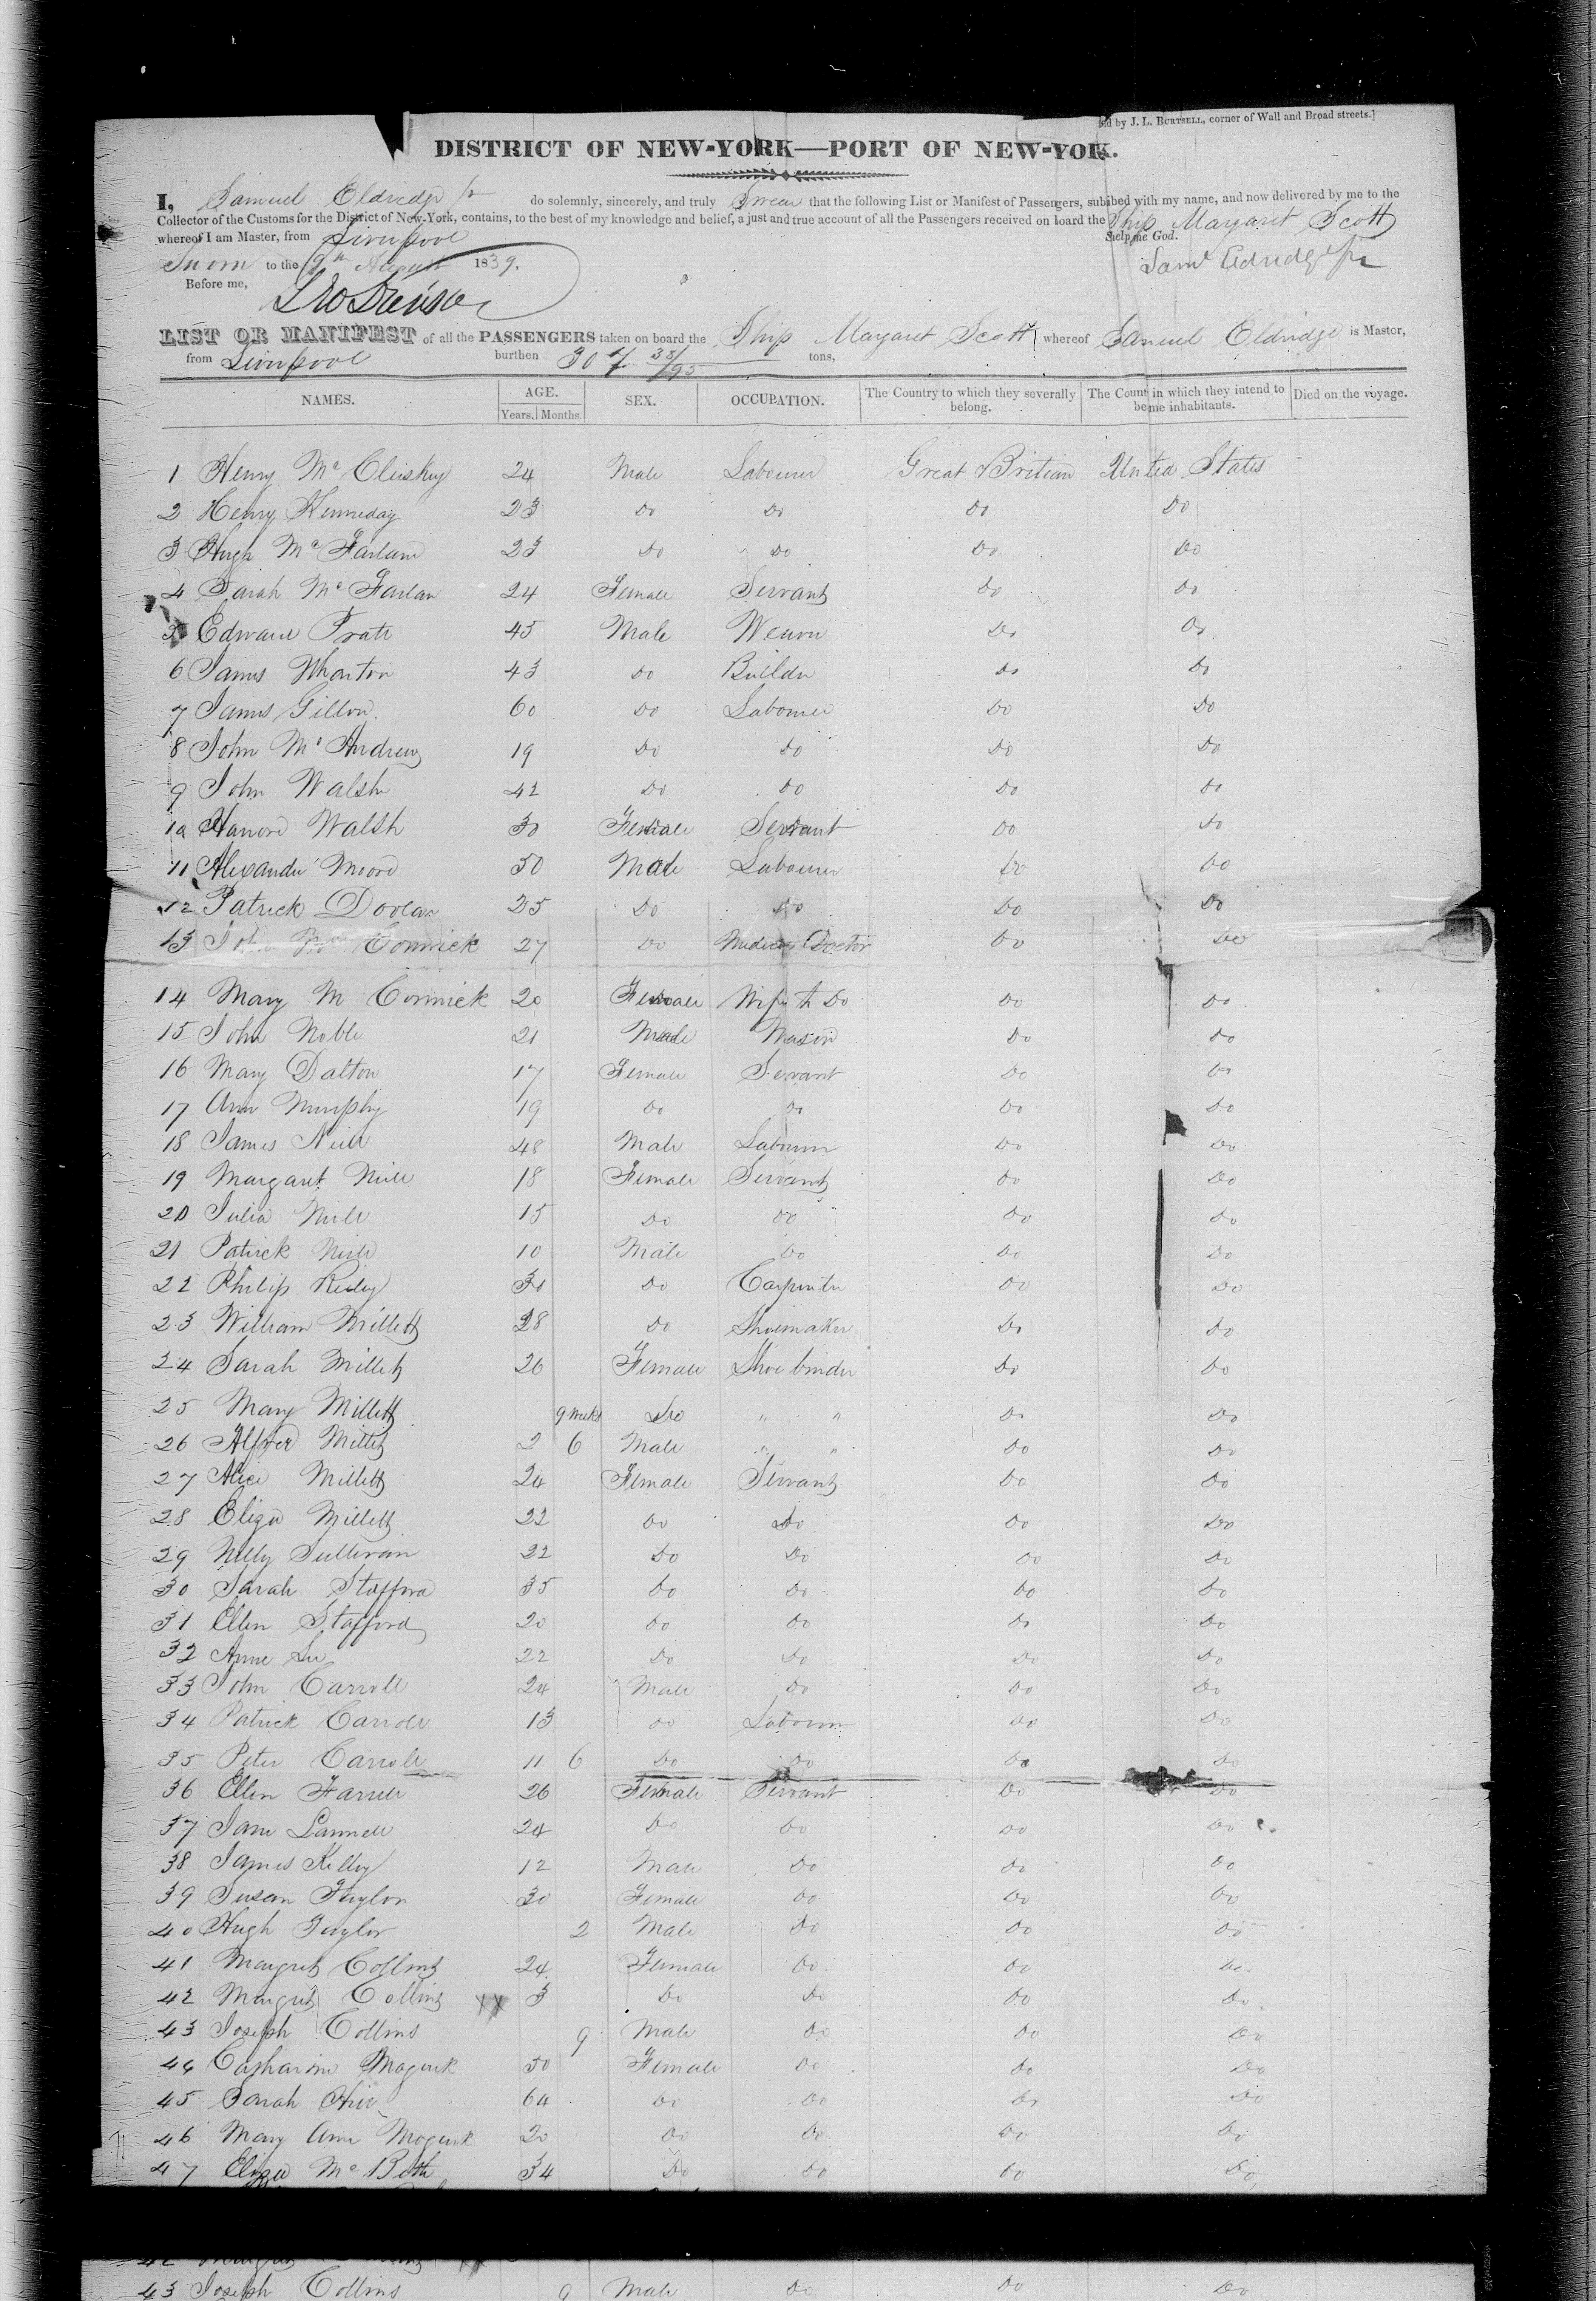 ld by J. L. BURTSELL, corner of Wall and Broad streets.]
DISTRICT OF NEW-YORK—PORT OF NEW-YOK.
I, Samuel Eldridge Jr do solemnly, sincerely, and truly Swear that the following List or Manifest of Passengers, subibed with my name, and now delivered by me to the
Collector of the Customs for the District of New-York, contains, to the best of my knowledge and belief, a just and true account of all the Passengers received on board the Ship Margaret Scott
whereof I am Master, from Liverpool help me God.
Sworn to the 9th August 1839. Saml Eldridge Jr
Before me,
LIST OR MANIFEST of all the PASSENGERS taken on board the Ship Margaret Scott whereof Samuel Eldridge is Master,
from Liverpool burthen 307 38/95 tons,
NAMES. AGE. Years. Months. SEX. OCCUPATION. The Country to which they severally belong. The Count in which they intend to beme inhabitants. Died on the voyage.
1 Henry Mc Cluskey 24 Male Labourer Great Britian United States
2 Henry Kenneday 23 Do Do Do Do
3 Hugh Mc Farlane 23 Do Do Do Do
4 Sarah Mc Farlan 24 Female Servant Do Do
5 Edward Pratt 45 Male Weaver Do Do
6 James Wharton 43 Do Builder Do Do
7 James Gildon 60 Do Labourer Do Do
8 John Mc Andrew 19 Do Do Do Do
9 John Walsh 42 Do Do Do Do
10 Hanora Walsh 30 Female Servant Do Do
11 Alexander Moore 50 Male Labourer Do Do
12 Patrick Doolan 25 Do Do Do Do
13 John Mc Cormick 27 Do Medical Doctor Do Do
14 Mary M Cormick 20 Female Wife to Do Do Do
15 John Noble 21 Male Mason Do Do
16 Mary Dalton 17 Female Servant Do Do
17 Ann Murphy 19 Do Do Do Do
18 James Neill 48 Male Labourer Do Do
19 Margaret Neill 18 Female Servant Do Do
20 Julia Neill 15 Do Do Do Do
21 Patrick Neill 10 Male Do Do Do
22 Philip Reiley 30 Do Carpenter Do Do
23 William Millett 28 Do Shoemaker Do Do
24 Sarah Millett 26 Female Shoe binder Do Do
25 Mary Millett 9 weeks Do " " Do Do
26 Alfred Millett 2 6 Male " " Do Do
27 Alice Millett 24 Female Servant Do Do
28 Eliza Millett 22 Do Do Do Do
29 Nelly Sullivan 22 Do Do Do Do
30 Sarah Stafford 35 Do Do Do Do
31 Ellen Stafford 20 Do Do Do Do
32 Anne Lee 22 Do Do Do Do
33 John Carroll 24 Male Do Do Do
34 Patrick Carroll 13 Do Labourer Do Do
35 Peter Carroll 11 6 Do Do Do Do
36 Ellen Farrell 26 Female Servant Do Do
37 Jane 24 Do Do Do Do
38 James Kelley 12 Male Do Do Do
39 Susan Taylor 30 Female Do Do Do
40 Hugh Taylor 2 Male Do Do Do
41 Margret Collins 24 Female Do Do Do
42 Margret Collins XX 3 Do Do Do Do
43 Joseph Collins 9 Male Do Do Do
44 Catharine Magurk 50 Female Do Do Do
45 Sarah 64 Do Do Do Do
46 Mary Ann Magurk 20 Do Do Do Do
47 Eliza Mc Beth 34 Do Do Do Do
43 Joseph Collins 9 Male Do Do Do